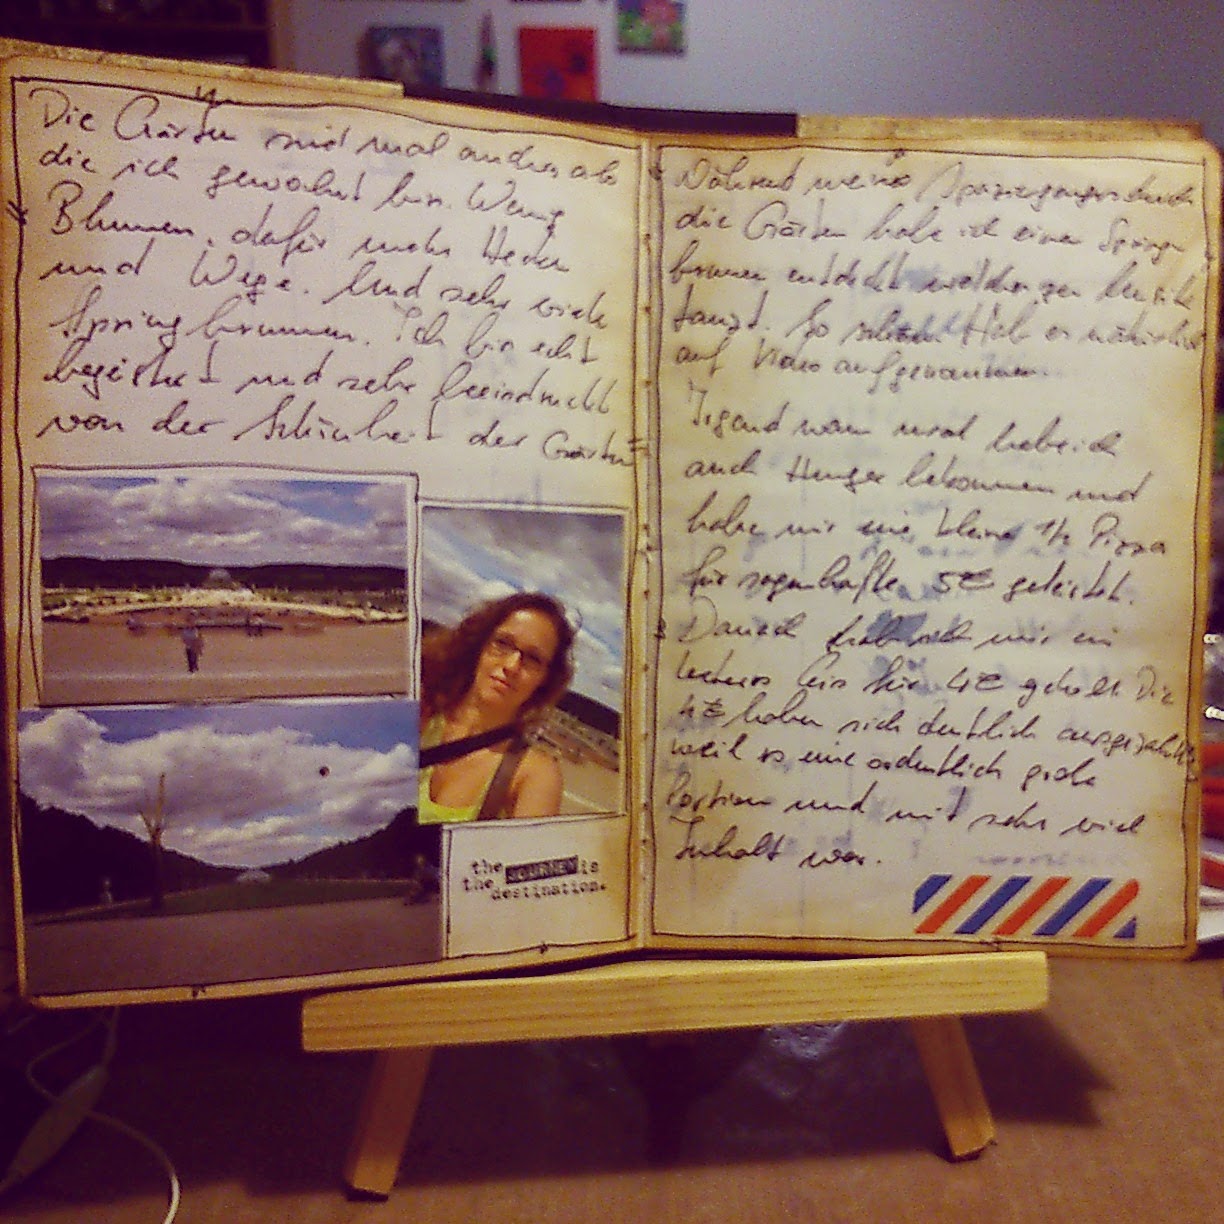 Die Gärten sind mal anders als
die ich gewohnt bin. Wenig
Blumen, dafür mehr Hecken
und Wege. Und sehr viele
Springbrunnen. Ich bin echt
begeistert und sehr beeindruckt
von der Schönheit der Gärten
the JOURNEY is
the destination.
Während meines Spazierganges durch
die Gärten habe ich einen Spring
brunnen entdeckt welcher zur Musik
tanzt. So schön. Hab es natürlich
auf Video aufgenommen.
Irgendwann mal habe ich
auch Hunger bekommen und
habe mir eine kleine 1/2 Pizza
für sagenhafte 5€ geleistet.
Danach hab ich mir ein
leckeres Eis für 4€ geholt. Die
4€ haben sich deutlich ausgezahlt
weil es eine ordentlich große
Portion und mit sehr viel
Inhalt war.